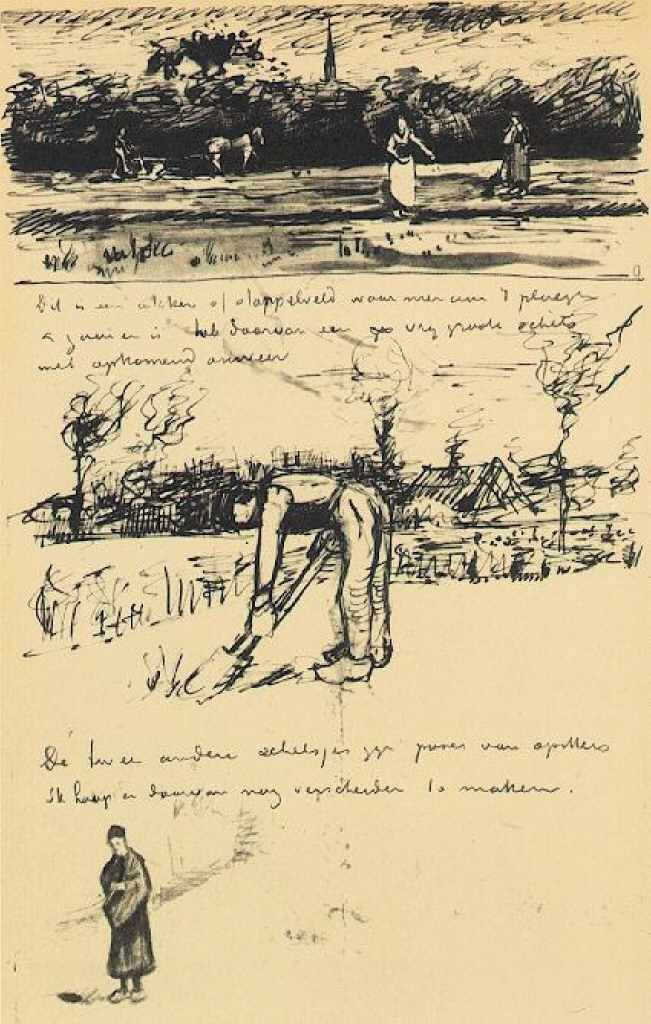 Dit is een akker of stoppelveld waar men aan 't ploegen
& zaaien is heb daarvan een vrij groote schets
met opkomend onweer
De twee andere schetsjes zijn poses van spitters
ik hoop er daarvan nog verscheiden te maken.